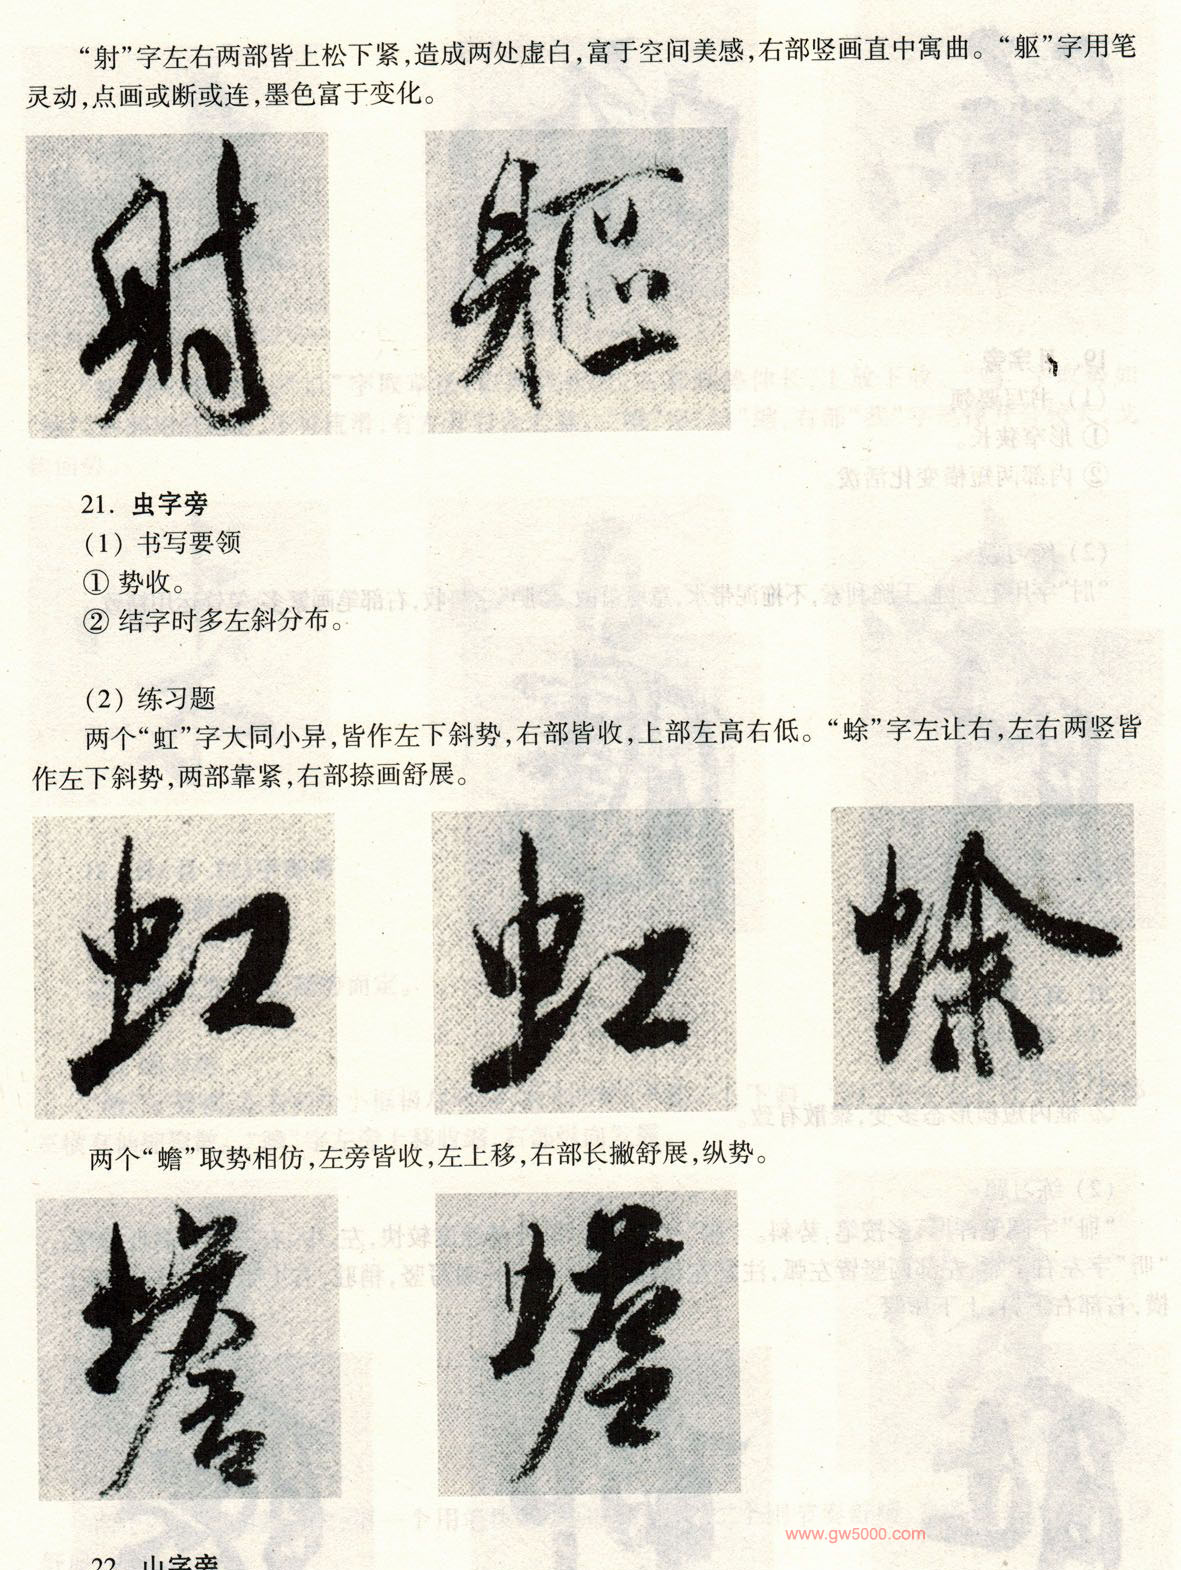 “射”字左右两部皆上松下紧,造成两处虚白,富于空间美感,右部竖画直中寓曲。“躯”字用笔
灵动,点画或断或连,墨色富于变化。
射 軀
21. 虫字旁
(1) 书写要领
① 势收。
② 结字时多左斜分布。
(2) 练习题
两个“虹”字大同小异,皆作左下斜势,右部皆收,上部左高右低。“蜍”字左让右,左右两竖皆
作左下斜势,两部靠紧,右部捺画舒展。
虹 虹 蜍
两个“蟾”取势相仿,左旁皆收,左上移,右部长撇舒展,纵势。
蟾 蟾
www.gw5000.com
22. 山字旁